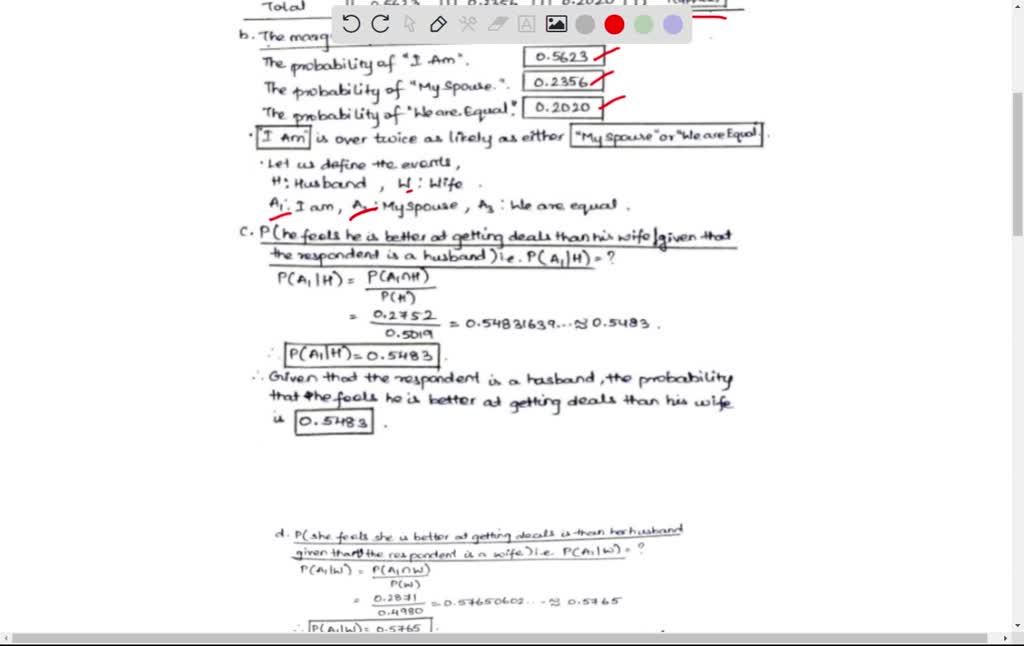 Total
b. The marg
The probability of "I Am". 0.5623
The probability of "My Spouse." 0.2356
The probability of "We are Equal." 0.2020
"I Am" is over twice as likely as either "My Spouse" or "We are Equal".
Let us define the events,
H: Husband, W: Wife.
A₁: I am, A₂: My spouse, A₃: We are equal.
c. P(he feels he is better at getting deals than his wife | given that
the respondent is a husband) i.e. P(A₁|H) = ?
P(A₁|H) = P(A₁∩H)
P(H)
= 0.2752
0.5019
= 0.54831639... ≈ 0.5483.
∴ P(A₁|H) = 0.5483.
∴ Given that the respondent is a hasband, the probability
that the feels he is better at getting deals than his wife
is 0.5483.
d. P(she feels she is better at getting deals is than her husband
given that the respondent is a wife) i.e. P(A₁|W) = ?
P(A₁|W) = P(A₁∩W)
P(W)
= 0.2871
0.4980
= 0.57650602... ≈ 0.5765
∴ P(A₁|W) = 0.5765.